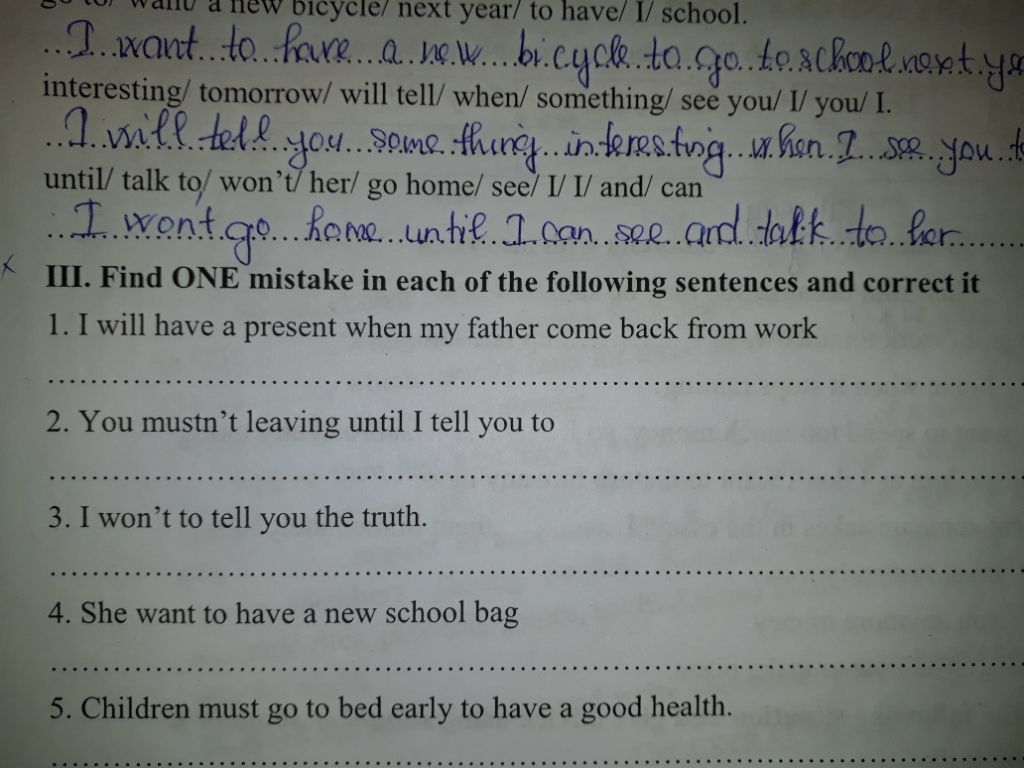 want/ a new bicycle/ next year/ to have/ I/ school.
I want to have a new bicycle to go to school next
interesting/ tomorrow/ will tell/ when/ something/ see you/ I/ you/ I.
I will tell you something interesting when I see you
until/ talk to/ won't/ her/ go home/ see/ I/ I/ and/ can
I won't go home until I can see and talk to her
III. Find ONE mistake in each of the following sentences and correct it
1. I will have a present when my father come back from work
2. You mustn't leaving until I tell you to
3. I won't to tell you the truth.
4. She want to have a new school bag
5. Children must go to bed early to have a good health.